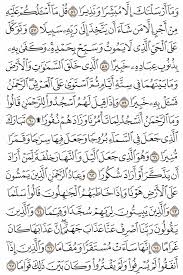 وَمَآ أَرْسَلْنَٰكَ إِلَّا مُبَشِّرًا وَنَذِيرًا ٥٦ قُلْ مَآ أَسْـَٔلُكُمْ عَلَيْهِ
مِنْ أَجْرٍ إِلَّا مَن شَآءَ أَن يَتَّخِذَ إِلَىٰ رَبِّهِۦ سَبِيلًا ٥٧ وَتَوَكَّلْ
عَلَى ٱلْحَىِّ ٱلَّذِى لَا يَمُوتُ وَسَبِّحْ بِحَمْدِهِۦ وَكَفَىٰ بِهِۦ
بِذُنُوبِ عِبَادِهِۦ خَبِيرًا ٥٨ ٱلَّذِى خَلَقَ ٱلسَّمَٰوَٰتِ وَٱلْأَرْضَ
وَمَا بَيْنَهُمَا فِى سِتَّةِ أَيَّامٍ ثُمَّ ٱسْتَوَىٰ عَلَى ٱلْعَرْشِ ٱلرَّحْمَٰنُ
فَسْـَٔلْ بِهِۦ خَبِيرًا ٥٩ وَإِذَا قِيلَ لَهُمُ ٱسْجُدُوا۟ لِلرَّحْمَٰنِ قَالُوا۟
وَمَا ٱلرَّحْمَٰنُ أَنَسْجُدُ لِمَا تَأْمُرُنَا وَزَادَهُمْ نُفُورًا ۩ ٦٠ تَبَارَكَ
ٱلَّذِى جَعَلَ فِى ٱلسَّمَآءِ بُرُوجًا وَجَعَلَ فِيهَا سِرَٰجًا وَقَمَرًا
مُّنِيرًا ٦١ وَهُوَ ٱلَّذِى جَعَلَ ٱلَّيْلَ وَٱلنَّهَارَ خِلْفَةً لِّمَنْ
أَرَادَ أَن يَذَّكَّرَ أَوْ أَرَادَ شُكُورًا ٦٢ وَعِبَادُ ٱلرَّحْمَٰنِ ٱلَّذِينَ يَمْشُونَ
عَلَى ٱلْأَرْضِ هَوْنًا وَإِذَا خَاطَبَهُمُ ٱلْجَٰهِلُونَ قَالُوا۟ سَلَٰمًا
٦٣ وَٱلَّذِينَ يَبِيتُونَ لِرَبِّهِمْ سُجَّدًا وَقِيَٰمًا ٦٤ وَٱلَّذِينَ
يَقُولُونَ رَبَّنَا ٱصْرِفْ عَنَّا عَذَابَ جَهَنَّمَ إِنَّ عَذَابَهَا كَانَ
غَرَامًا ٦٥ إِنَّهَا سَآءَتْ مُسْتَقَرًّا وَمُقَامًا ٦٦ وَٱلَّذِينَ إِذَآ
أَنفَقُوا۟ لَمْ يُسْرِفُوا۟ وَلَمْ يَقْتُرُوا۟ وَكَانَ بَيْنَ ذَٰلِكَ قَوَامًا ٦٧